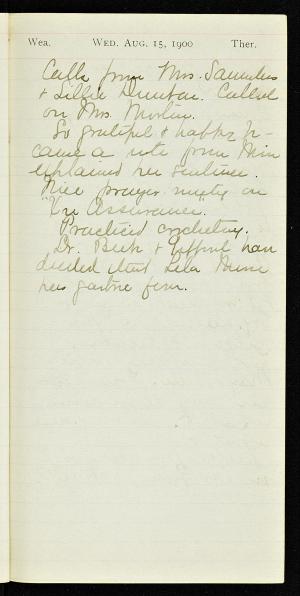 Wea. WED. AUG. 15, 1900 Ther.
Calls from Mrs. Saunders
& Lillie Dunbar. Called
on Mrs.
So grateful & happy
came a note from
explained her
Nice prayer meet'g on
Assurance".
Practiced crocheting.
Dr. Beek & Gifford have
decided that Lela
has gastric fever.